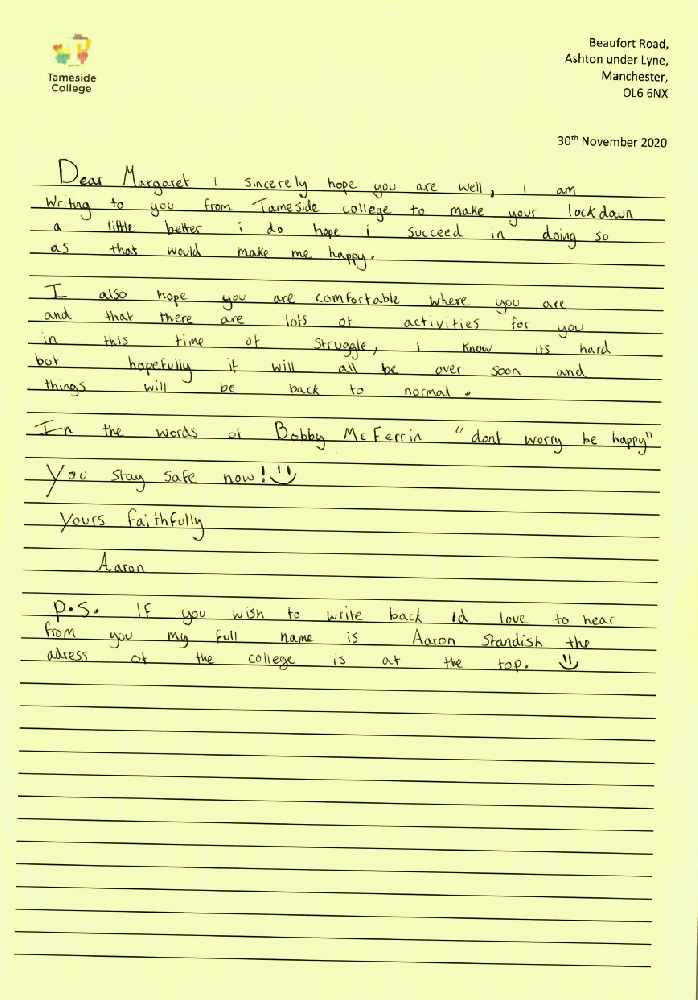 Tameside
College
Beaufort Road,
Ashton under Lyne,
Manchester,
OL6 6NX
30th November 2020
Dear Margaret I sincerely hope you are well, I am
Writing to you from Tameside college to make your lockdown
a little better i do hope i succeed in doing so
as that would make me happy.
I also hope you are comfortable where you are
and that there are lots of activities for you
in this time of struggle, I know its hard
but hopefully it will all be over soon and
things will be back to normal.
In the words of Bobby McFerrin "dont worry be happy"
You stay safe now!
Yours faithfully
Aaron
P.S. If you wish to write back Id love to hear
from you my full name is Aaron Standish the
adress of the college is at the top.